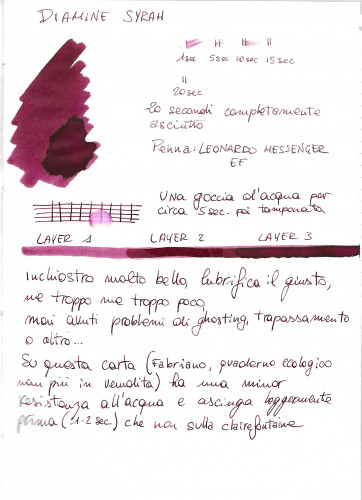 DIAMINE SYRAH
1sec 5sec 10sec 15sec
20sec
20 secondi completamente
asciutto
Penna: LEONARDO MESSENGER
EF
UNA goccia d'acqua per
circa 5 sec. poi tamponata
LAYER 1 LAYER 2 LAYER 3
Inchiostro molto bello, lubrifica il giusto,
ne troppo ne troppo poco,
mai avuti problemi di ghosting, trapassamento
o altro...
Su questa carta (Fabriano, quaderno ecologico
non più in vendita) ha una minor
resistenza all'acqua e asciuga leggermente
prima (1-2 sec) che non sulla clairefontaine